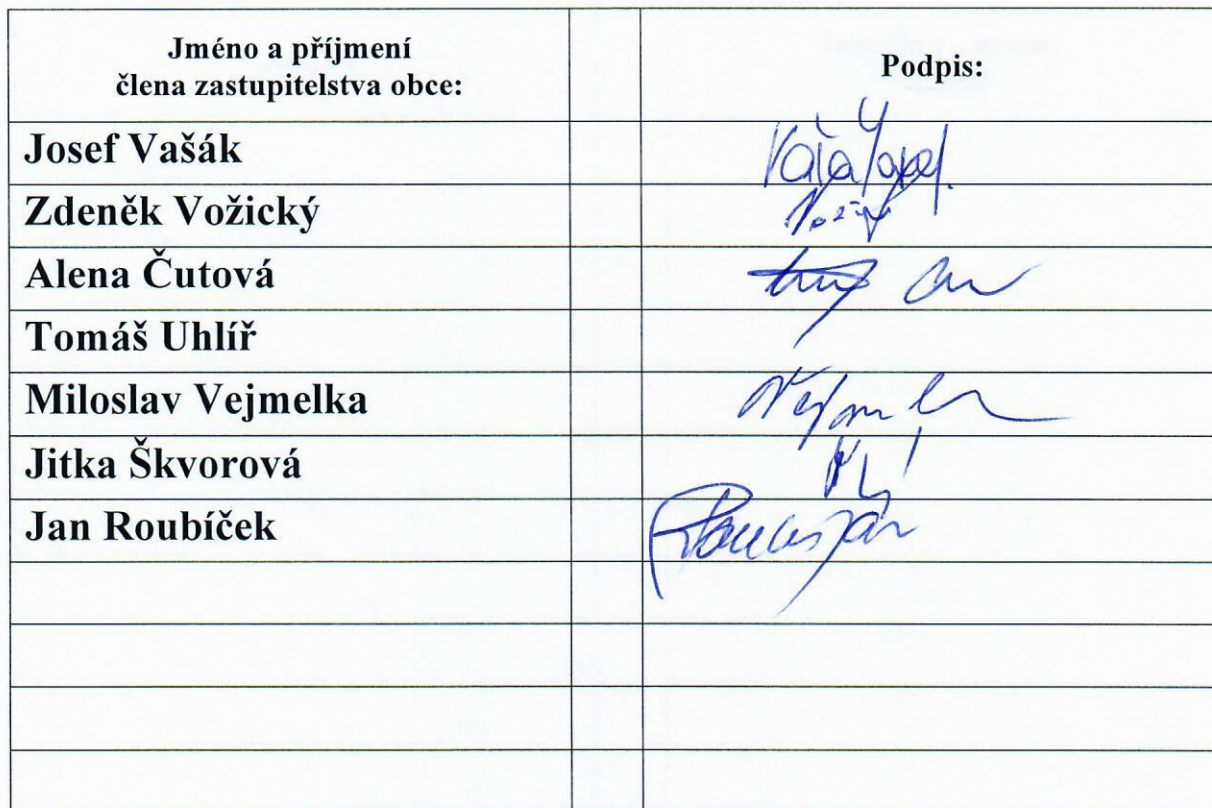 Jméno a příjmení
člena zastupitelstva obce:
Podpis:
Josef Vašák
Zdeněk Vožický
Alena Čutová
Tomáš Uhlíř
Miloslav Vejmelka
Jitka Škvorová
Jan Roubíček